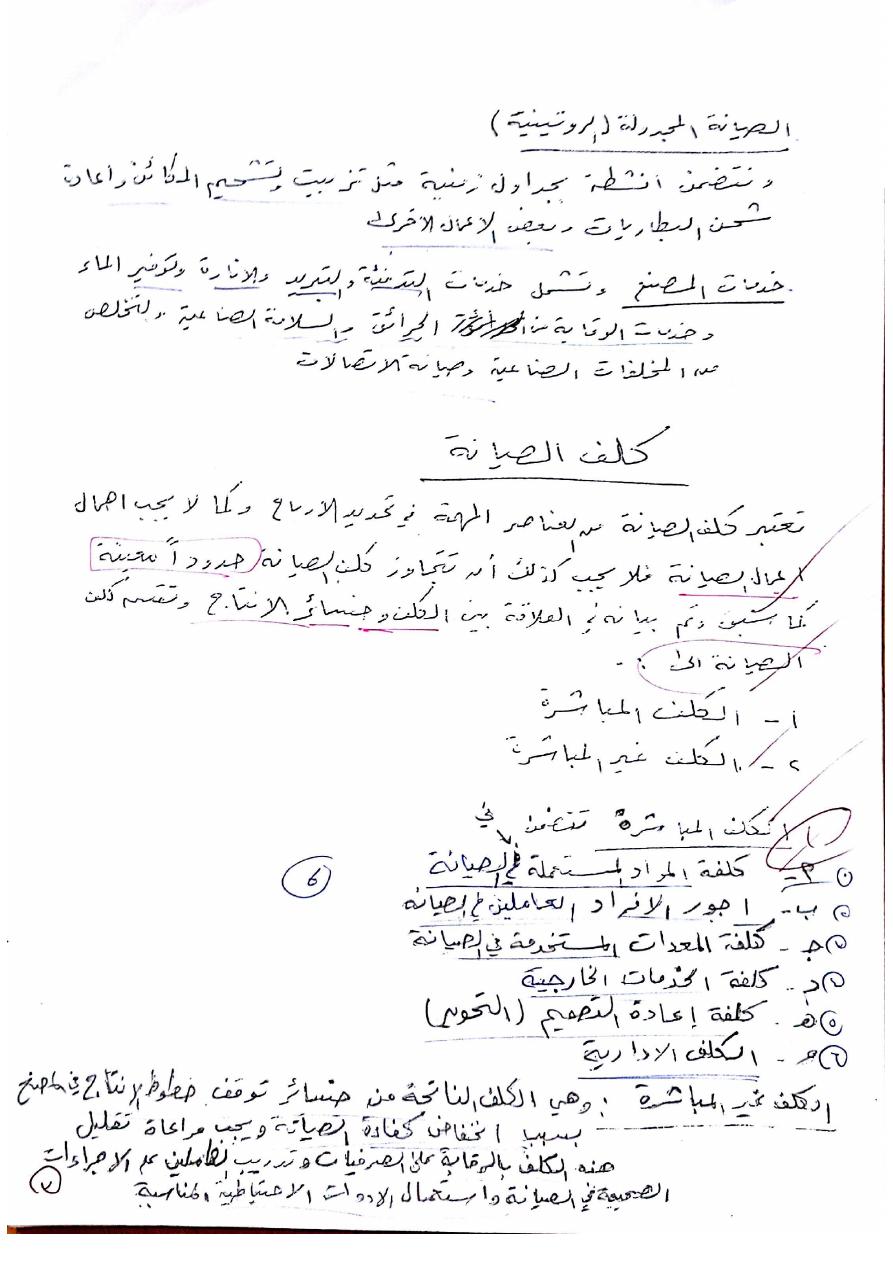 الصيانة المجدولة (الروتينية)
وتتضمن أنشطة بجداول زمنية مثل تزييت وتشحيم المكائن وأعادة
شحن البطاريات وبعض الاعمال الأخرى
خدمات المصنع وتشمل خدمات التدفئة والتبريد والانارة وتوفير الماء
وخدمات الوقاية من الحرائق والسلامة الصناعية والتخلص
من المخلفات الصناعية وصيانة الاتصالات
كلف الصيانة
تعتبر كلف الصيانة من العناصر المهمة في تحديد الأرباح وكما لا يجب اهمال
اعمال الصيانة فلا يجب كذلك أن تتجاوز كلف الصيانة حدوداً معينة
كما سبق وتم بيانه في العلاقة بين الكلف وخسائر الانتاج وتقسم كلف
الصيانة الى :-
١- الكلف المباشرة
٢- الكلف غير المباشرة
١ الكلف المباشرة تتضمن
١ أ- كلفة المواد المستعملة في الصيانة
٢ ب- اجور الافراد العاملين في الصيانة
٣ ج- كلفة المعدات المستخدمة في الصيانة
٤ د- كلفة الخدمات الخارجية
٥ هـ- كلفة إعادة التصميم (التحوير)
٦ و- الكلف الادارية
6
الكلف غير المباشرة : وهي الكلف الناتجة من خسائر توقف خطوط الإنتاج في المصنع
بسبب انخفاض كفاءة الصيانة ويجب مراعاة تقليل
هذه الكلف بالرقابة على الصرفيات وتدريب العاملين على الاجراءات
الصحيحة في الصيانة واستعمال الادوات الاحتياطية المناسبة
٧